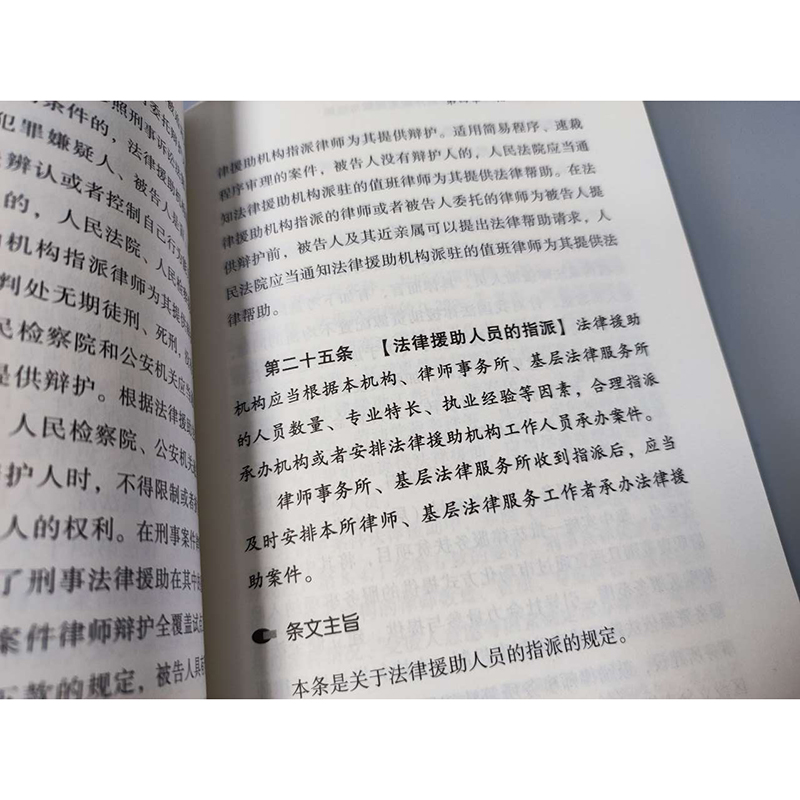 条件的，法律援助
犯罪嫌疑人、被告人是
辨认或者控制自己行为
的，人民法院、人民检察
机构指派律师为其提供
判处无期徒刑、死刑
民检察院和公安机关应当
提供辩护。根据法律援
人民检察院、公安机关
护人时，不得限制或者
人的权利。在刑事案件
了刑事法律援助在其中
案件律师辩护全覆盖试
五款的规定，被告人具有
律援助机构指派律师为其提供辩护。适用简易程序、速裁
程序审理的案件，被告人没有辩护人的，人民法院应当通
知法律援助机构派驻的值班律师为其提供法律帮助。在法
律援助机构指派的律师或者被告人委托的律师为被告人提
供辩护前，被告人及其近亲属可以提出法律帮助请求，人
民法院应当通知法律援助机构派驻的值班律师为其提供法
律帮助。
第二十五条 【法律援助人员的指派】法律援助
机构应当根据本机构、律师事务所、基层法律服务所
的人员数量、专业特长、执业经验等因素，合理指派
承办机构或者安排法律援助机构工作人员承办案件。
律师事务所、基层法律服务所收到指派后，应当
及时安排本所律师、基层法律服务工作者承办法律援
助案件。
条文主旨
本条是关于法律援助人员的指派的规定。